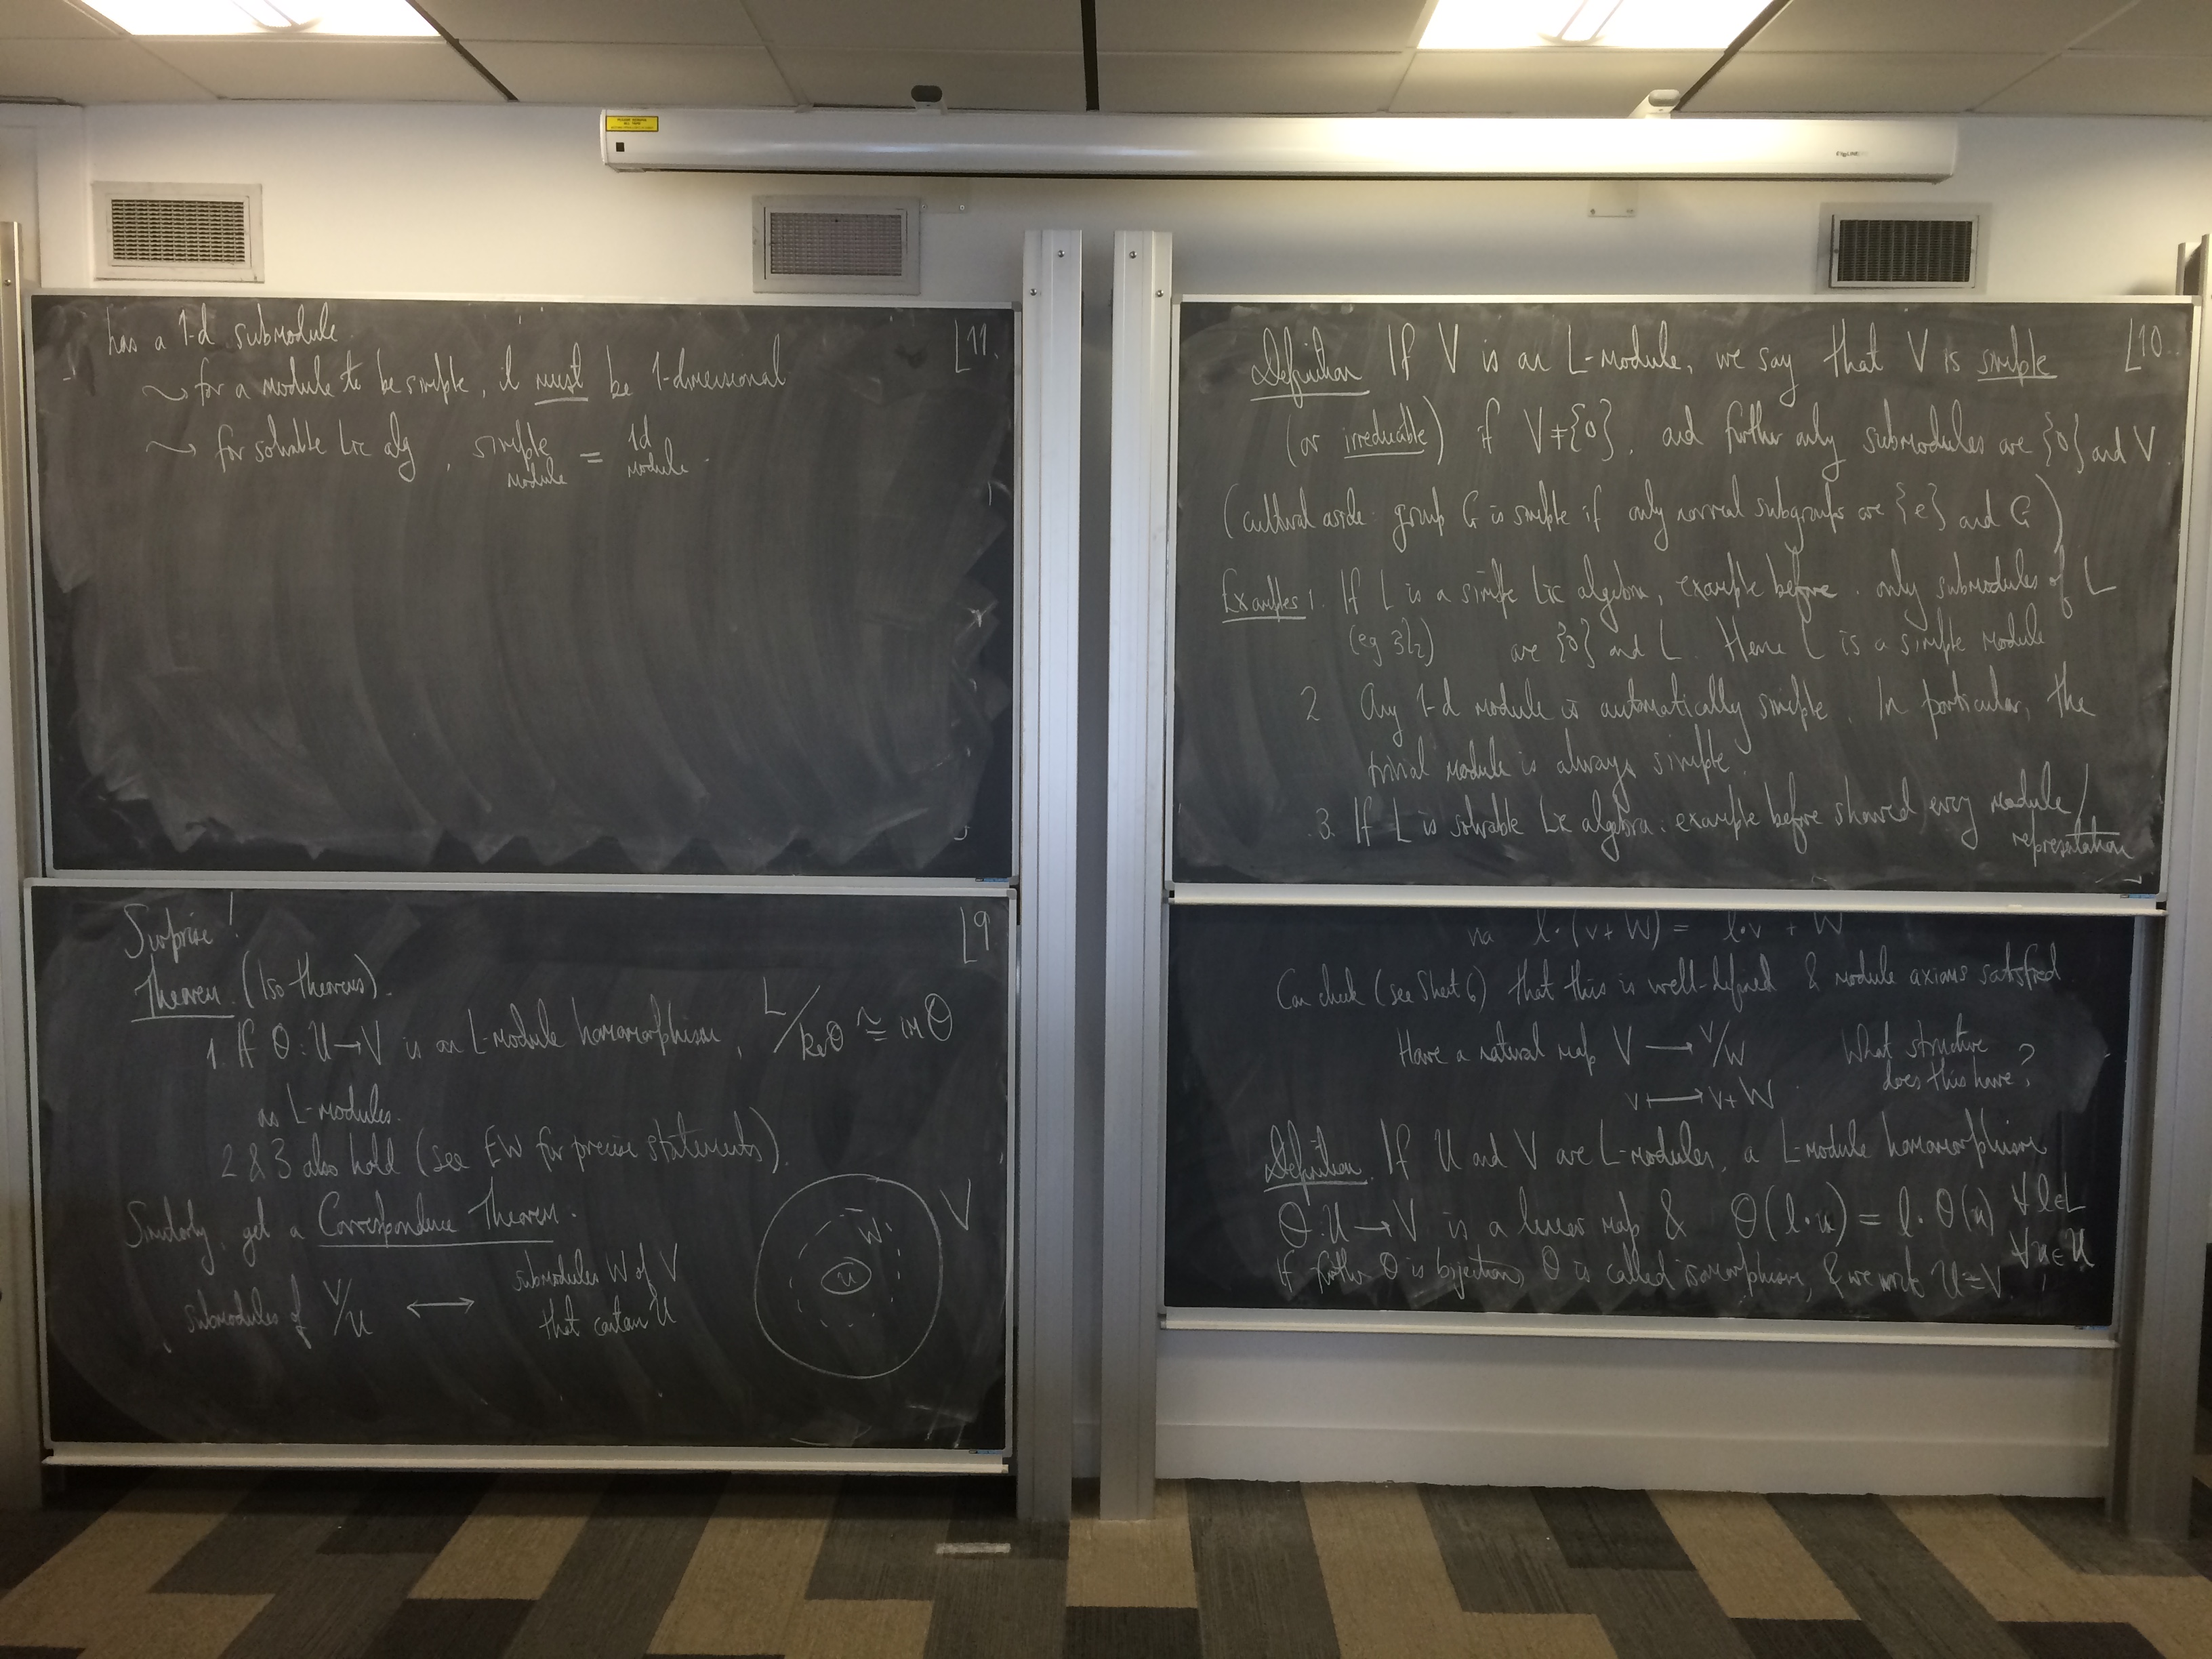 via l·(v+W) = l·v + W
Can check (see Sheet 6) that this is well-defined & module axioms satisfied.
Have a natural map V → V/W
v ↦ v+W
What structure
does this have?
Definition. If U and V are L-modules, a L-module homomorphism
Θ: U → V is a linear map & Θ(l·u) = l·Θ(u) ∀ l∈L
∀u∈U
If further Θ is bijection, Θ is called isomorphism, & we write U≅V.
9
Surprise!
Theorem. (Iso theorems).
1. If Θ: U→V is an L-module homomorphism, L/kerΘ ≅ imΘ
as L-modules.
2 & 3 also hold (see EW for precise statements).
Similarly, get a Correspondence Theorem.
submodules of V/U ⟷ submodules W of V
that contain U
V
W
U
10
Definition If V is an L-module, we say that V is simple
(or irreducible) if V≠{0}, and further only submodules are {0} and V.
(cultural aside: group G is simple if only normal subgroups are {e} and G)
Examples 1. If L is a simple Lie algebra, example before. only submodules of L
(eg sl₂) are {0} and L. Hence L is a simple module
2 Any 1-d module is automatically simple. In particular, the
trivial module is always simple.
3. If L is solvable Lie algebra: example before showed every module/
representation
11.
has a 1-d submodule.
⇝ for a module to be simple, it must be 1-dimensional
⇝ for solvable Lie alg, simple module = 1d module.